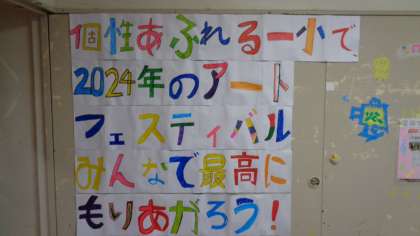 個性あふれる一小で
2024年のアート
フェスティバル
みんなで最高に
もりあがろう！